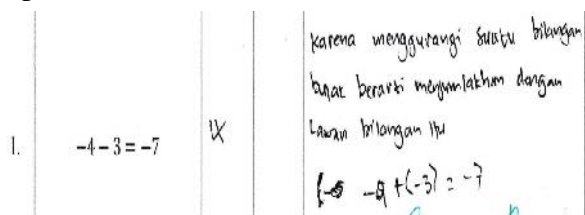 karena menggurangi suatu bilangan
bulat berarti menjumlahkan dengan
Lawan bilangan itu
1. -4 - 3 = -7
+(-3) = -7